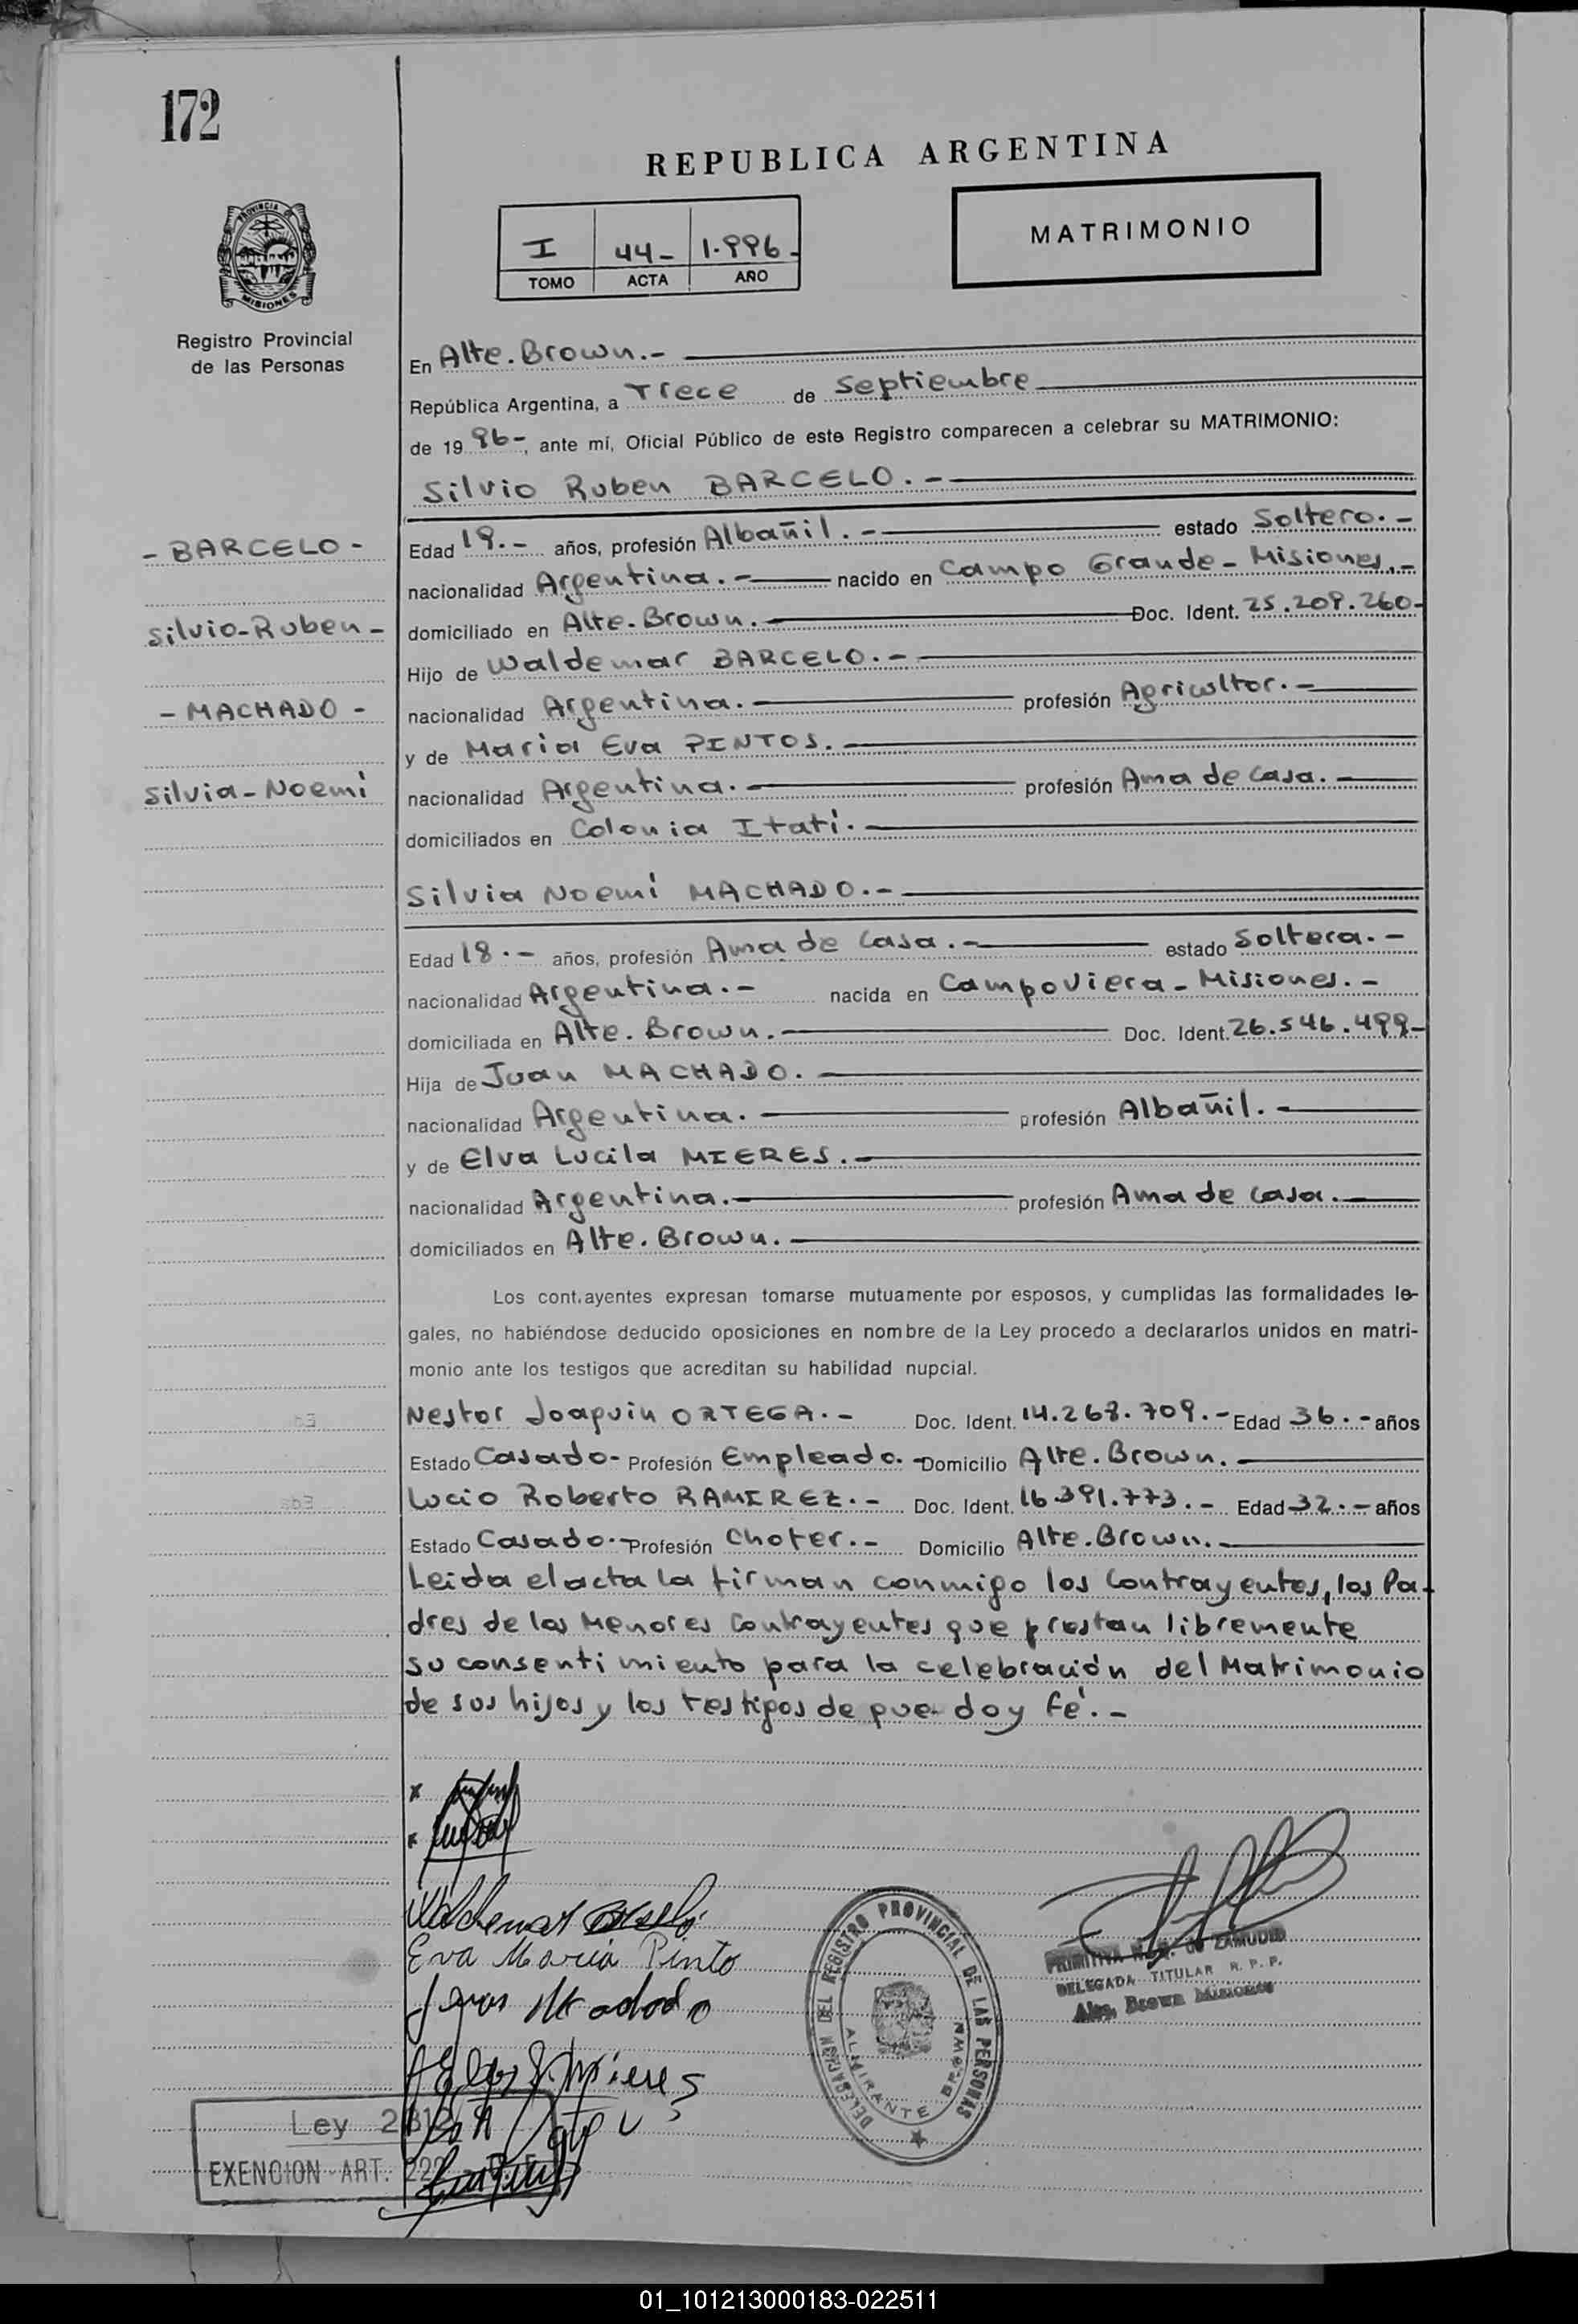 172
REPUBLICA ARGENTINA
PROVINCIA DE
MISIONES
I 44- 1.996-
TOMO ACTA AÑO
MATRIMONIO
Registro Provincial
de las Personas
En Alte. Brown.-
República Argentina, a Trece de Septiembre
de 1996-, ante mí, Oficial Público de este Registro comparecen a celebrar su MATRIMONIO:
Silvio Ruben BARCELO.-
- BARCELO -
Edad 19.- años, profesión Albañil.- estado Soltero.-
nacionalidad Argentina.- nacido en Campo Grande - Misiones.-
Silvio-Ruben-
domiciliado en Alte. Brown.- Doc. Ident. 25.209.260-
Hijo de Waldemar BARCELO.-
- MACHADO -
nacionalidad Argentina.- profesión Agricultor.-
y de Maria Eva PINTOS.-
Silvia-Noemí
nacionalidad Argentina.- profesión Ama de Casa.-
domiciliados en Colonia Itatí.-
Silvia Noemí MACHADO.-
Edad 18.- años, profesión Ama de Casa.- estado Soltera.-
nacionalidad Argentina.- nacida en Campo Viera - Misiones.-
domiciliada en Alte. Brown.- Doc. Ident. 26.546.499-
Hija de Juan MACHADO.-
nacionalidad Argentina.- profesión Albañil.-
y de Elva Lucila MIERES.-
nacionalidad Argentina.- profesión Ama de Casa.-
domiciliados en Alte. Brown.-
Los cont.ayentes expresan tomarse mutuamente por esposos, y cumplidas las formalidades le-
gales, no habiéndose deducido oposiciones en nombre de la Ley procedo a declararlos unidos en matri-
monio ante los testigos que acreditan su habilidad nupcial.
Nestor Joaquin ORTEGA.- Doc. Ident. 14.268.709.- Edad 36.- años
Estado Casado- Profesión Empleado.- Domicilio Alte. Brown.-
Lucio Roberto RAMIREZ.- Doc. Ident. 16.391.773.- Edad 32.- años
Estado Casado.- Profesión Chofer.- Domicilio Alte. Brown.-
Leida el acta la firman conmigo los Contrayentes, los Pa-
dres de los Menores Contrayentes que prestan libremente
su consentimiento para la celebración del Matrimonio
de sus hijos y los testigos de que doy fé.-
Waldemar
Eva Maria Pinto
DELEGACION DEL REGISTRO PROVINCIAL DE LAS PERSONAS
ALMIRANTE BROWN
DE ZAMUDIO
DELEGADA TITULAR R. P. P.
Alte. Brown Misiones
Mieres
Ley
EXENCION ART.
01_101213000183-022511